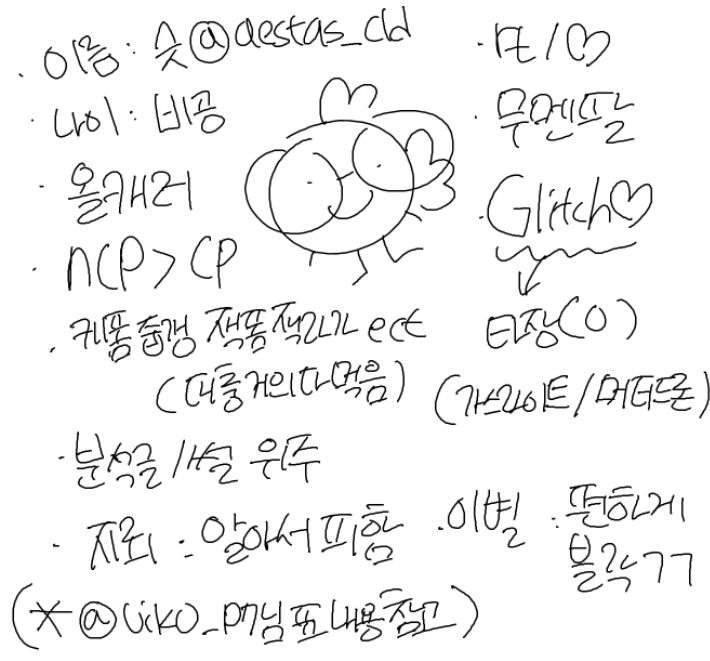 · 이름 : 슷@aestas_cld
· 나이 : 비공
· 올캐러
· nCP > CP
· 키퐁춥갱 잭퐁잭리가 ect
(대충거의다먹음)
· 분석글/썰 위주
· 지뢰 : 알아서 피함
(*@Uiko_p7님 표 내용참고)
· 트/♡
· 무멘팔
· Glitch♡
타장(O)
(가스라이트/머더드론)
· 이별 : 편하게
블락ㄱㄱ